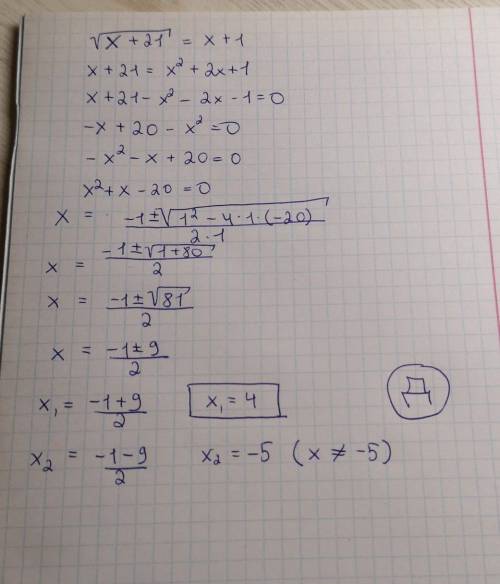 √(x+21) = x+1
x+21 = x²+2x+1
x+21-x²-2x-1=0
-x+20-x²=0
-x²-x+20=0
x²+x-20=0
x = -1±√(1²-4·1·(-20)) / 2·1
x = -1±√(1+80) / 2
x = -1±√81 / 2
x = -1±9 / 2
x₁ = -1+9 / 2 x₁ = 4 Д
x₂ = -1-9 / 2 x₂ = -5 (x ≠ -5)